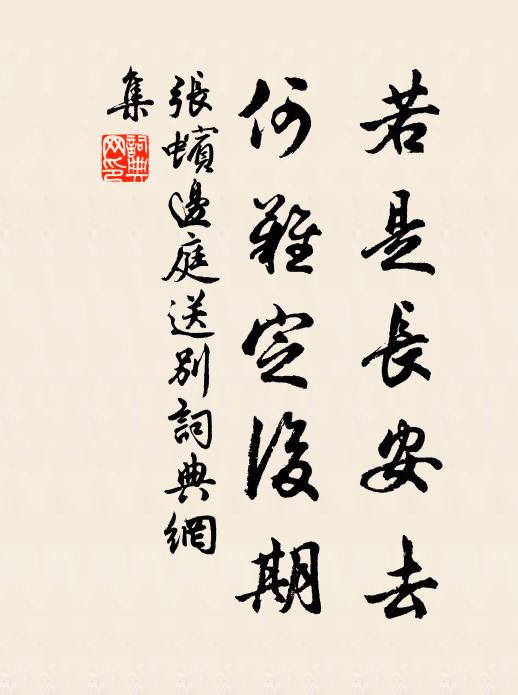 若是長安去
何難定後期
張蠙邊庭送別詞典網
集
詞典
網印